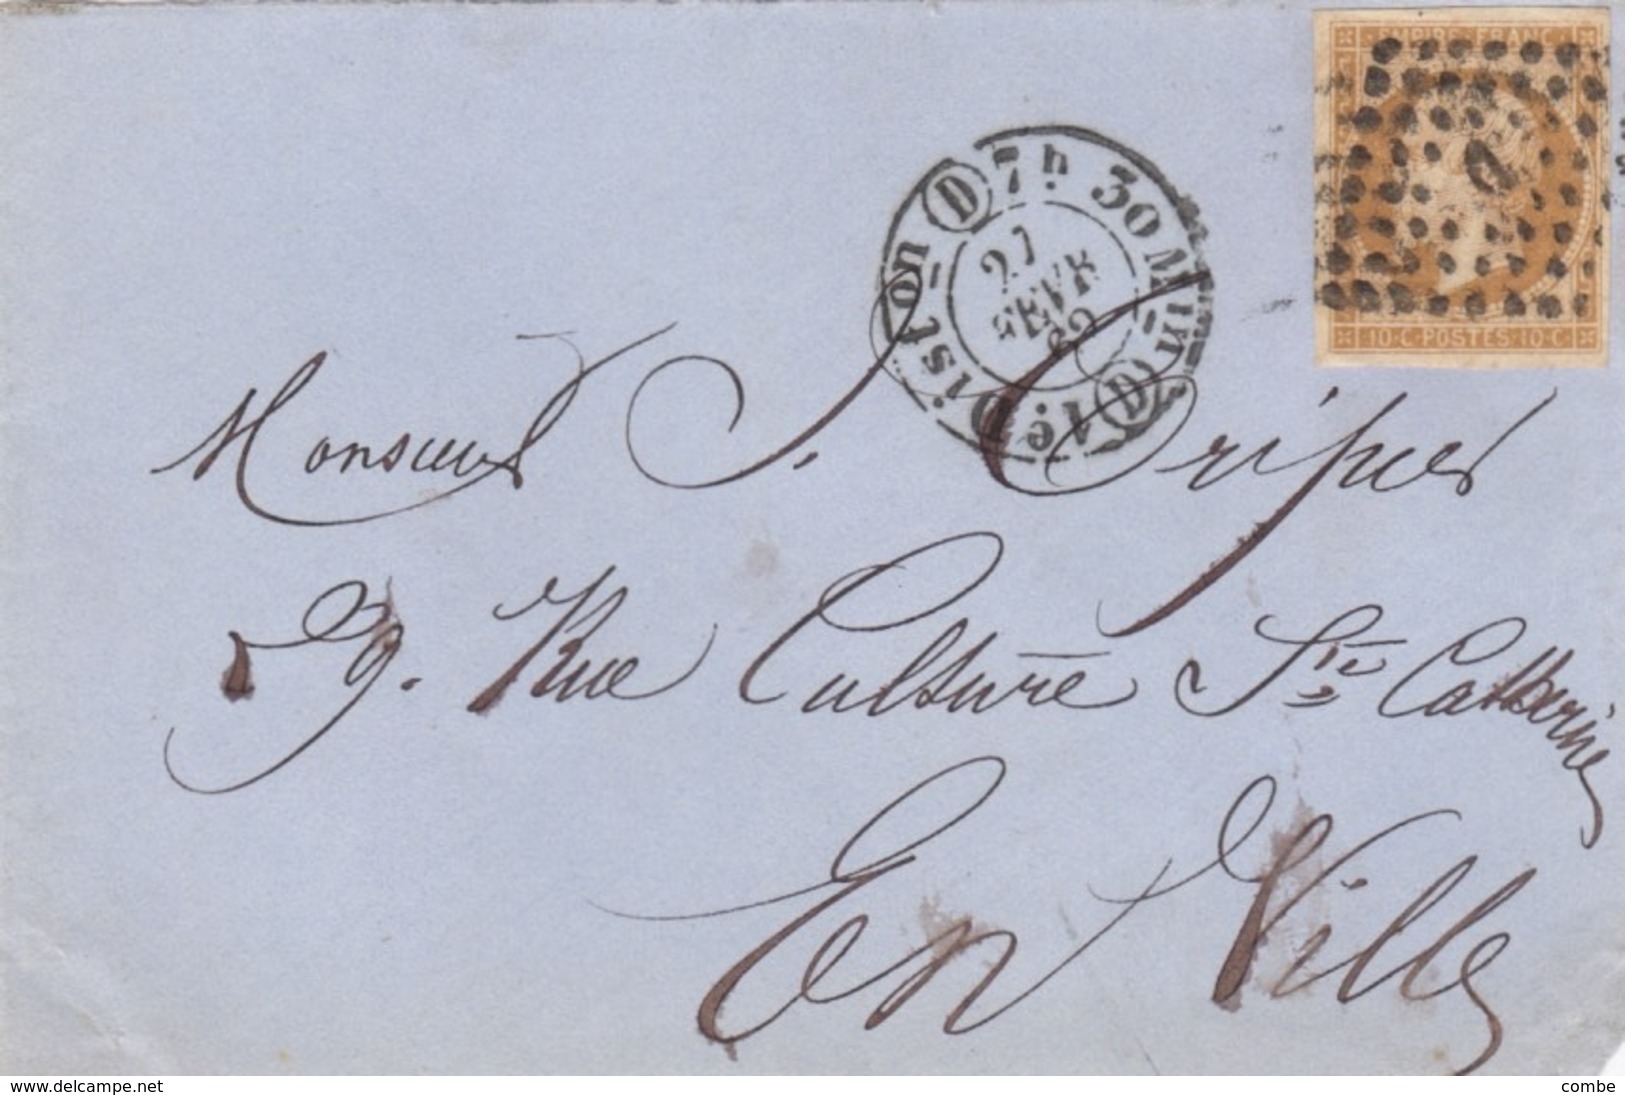 EMPIRE FRANC
10·C·POSTES·10·C·
Diston (D) 7h. 30 Min (D)
27
FEVR
60
Monsieur J. Cripier
29. Rue Culture Ste Catherine
En Ville
www.delcampe.net
combe